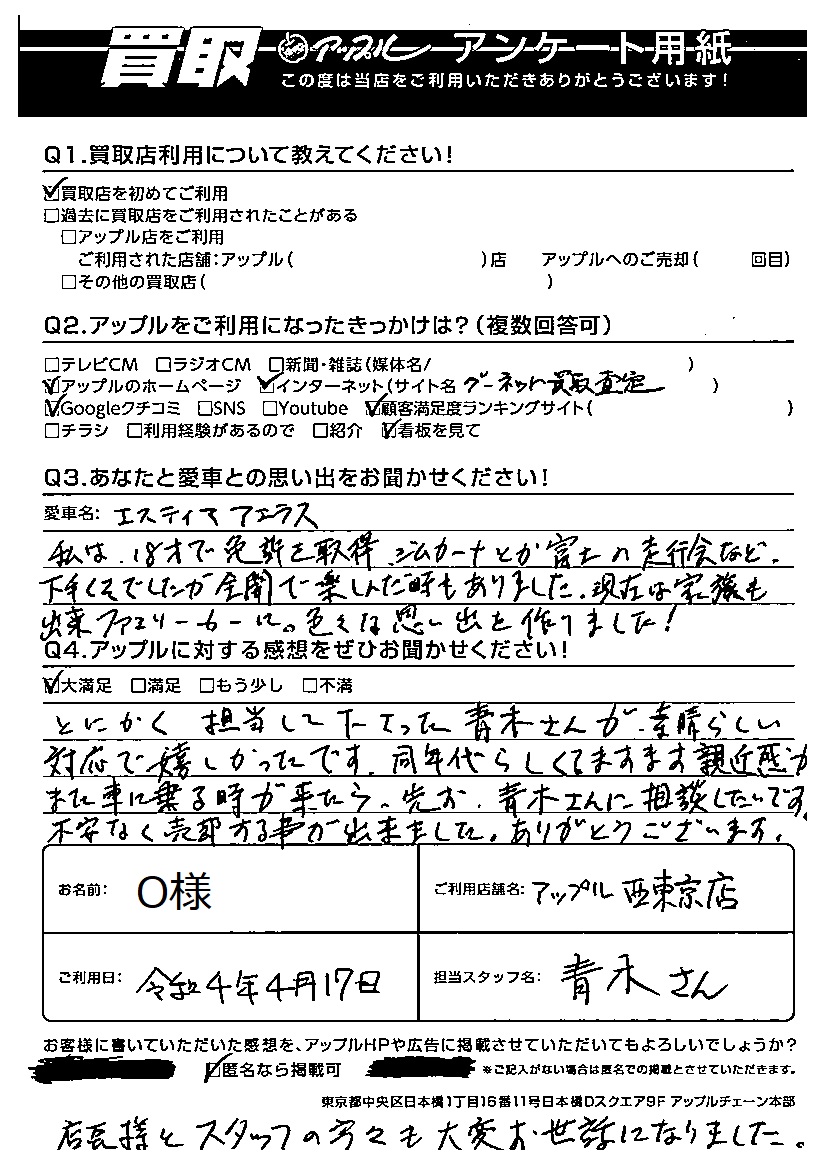 買取 アップル アンケート用紙
この度は当店をご利用いただきありがとうございます!
Q1.買取店利用について教えてください!
☑買取店を初めてご利用
□過去に買取店をご利用されたことがある
□アップル店をご利用
ご利用された店舗:アップル( )店 アップルへのご売却( 回目)
□その他の買取店( )
Q2.アップルをご利用になったきっかけは?(複数回答可)
□テレビCM □ラジオCM □新聞・雑誌(媒体名/ )
☑アップルのホームページ ☑インターネット(サイト名 グーネット買取査定 )
☑Googleクチコミ □SNS □Youtube ☑顧客満足度ランキングサイト( )
□チラシ □利用経験があるので □紹介 ☑看板を見て
Q3.あなたと愛車との思い出をお聞かせください!
愛車名: エスティマ アエラス
私は、18才で免許を取得、ジムカーナとか富士の走行会など、
下手くそでしたが全開で楽しんだ時もありました。現在は家族も
出来ファミリーカーに。色々な思い出を作りました!
Q4.アップルに対する感想をぜひお聞かせください!
☑大満足 □満足 □もう少し □不満
とにかく 担当して下さった青木さんが、素晴らしい
対応で嬉しかったです。同年代らしくてますます親近感が
また車に乗る時が来たら、先ず、青木さんに相談したいです。
不安なく売却する事が出来ました。ありがとうございます。
お名前: O様
ご利用店舗名: アップル 西東京店
ご利用日: 令和4年4月17日
担当スタッフ名: 青木さん
お客様に書いていただいた感想を、アップルHPや広告に掲載させていただいてもよろしいでしょうか?
☑匿名なら掲載可 ※ご記入がない場合は匿名での掲載とさせていただきます。
東京都中央区日本橋1丁目16番11号日本橋Dスクエア9F アップルチェーン本部
店長様とスタッフの方々も大変お世話になりました。